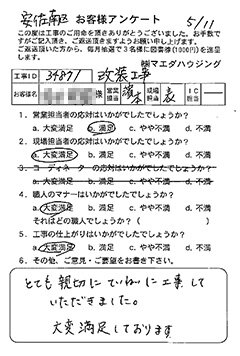 安佐南区 お客様アンケート 5/11
この度は工事のご用命を頂きありがとうございました。お手数で
すがご記入頂き、ご返送頂きますようお願い申し上げます。
ご返送頂いた方から、毎月抽選で3名様に図書券(1000円)を進呈
致します。 ㈱マエダハウジング
工事ID 34871 改装工事
お客様名 様 営業担当 現場担当 表 IC担当
1. 営業担当者の応対はいかがでしたでしょうか?
a. 大変満足 b. 満足 c. やや不満 d. 不満
2. 現場担当者の応対はいかがでしたでしょうか?
a. 大変満足 b. 満足 c. やや不満 d. 不満
3. コーディネーターの応対はいかがでしたでしょうか?
a. 大変満足 b. 満足 c. やや不満 d. 不満
4. 職人のマナーはいかがでしたでしょうか?
a. 大変満足 b. 満足 c. やや不満 d. 不満
それはどの職人でしょうか? ( )
5. 工事の仕上がりはいかがでしたでしょうか?
a. 大変満足 b. 満足 c. やや不満 d. 不満
6. その他、ご意見・ご要望をお書き下さい。
とても親切にていねいに工事して
いただきました。
大変満足しております